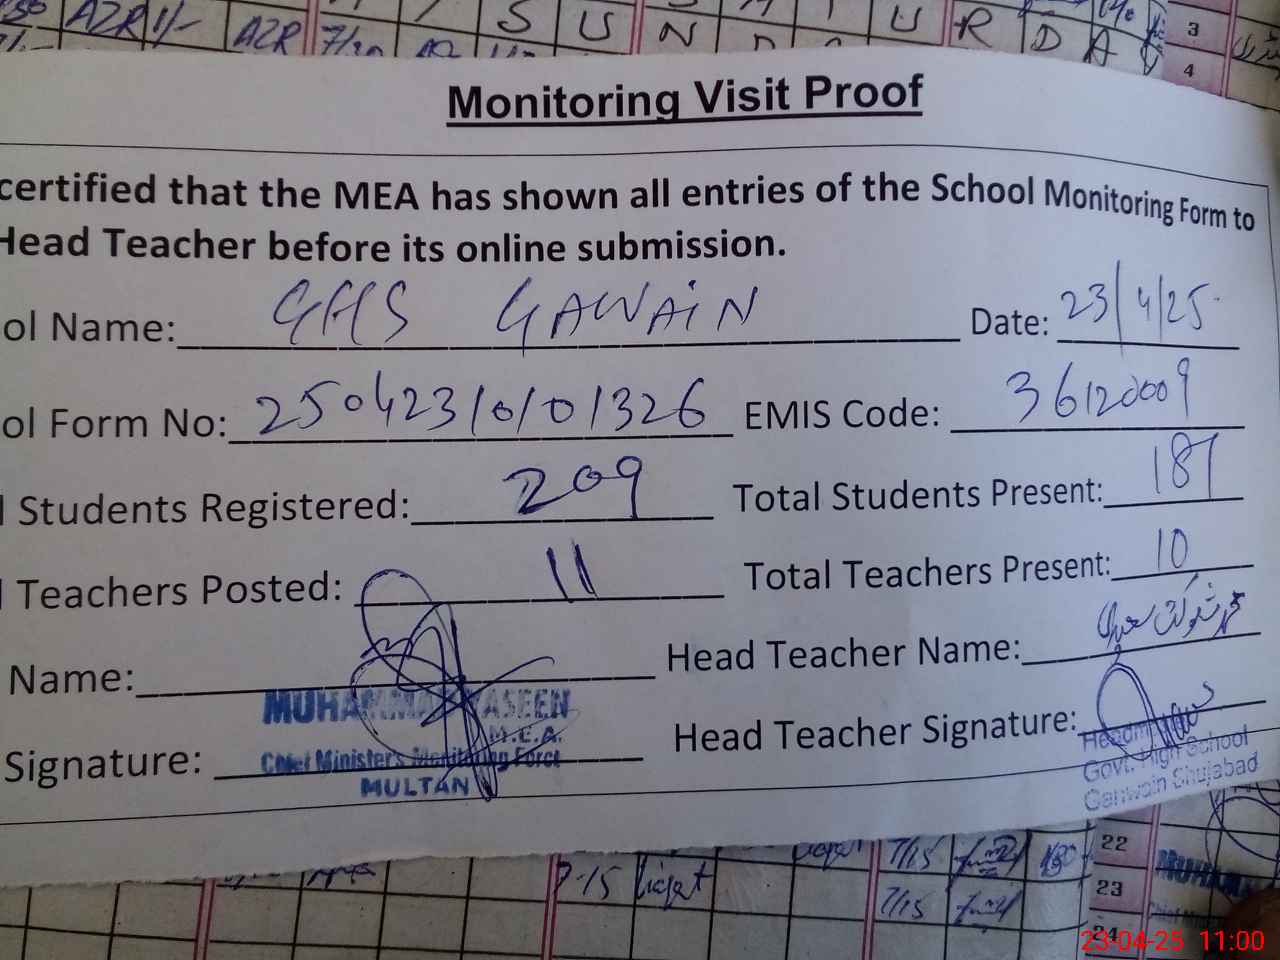 AZR 1/- AZR 7/20 S U N U R D A 3
4
Monitoring Visit Proof
certified that the MEA has shown all entries of the School Monitoring Form to
Head Teacher before its online submission.
ol Name: GHS GAWAIN Date: 23/4/25
ol Form No: 25042310101326 EMIS Code: 36120009
l Students Registered: 209 Total Students Present: 187
l Teachers Posted: 11 Total Teachers Present: 10
Name: Head Teacher Name:
MUHAMMAD YASEEN
M.E.A.
Signature: Chief Minister's Monitoring Force Head Teacher Signature:
MULTAN
Headm
Govt. High School
Ganwain Shujabad
7/15 22
7-15 7/15 23
24
MUHAM
23-04-25 11:00